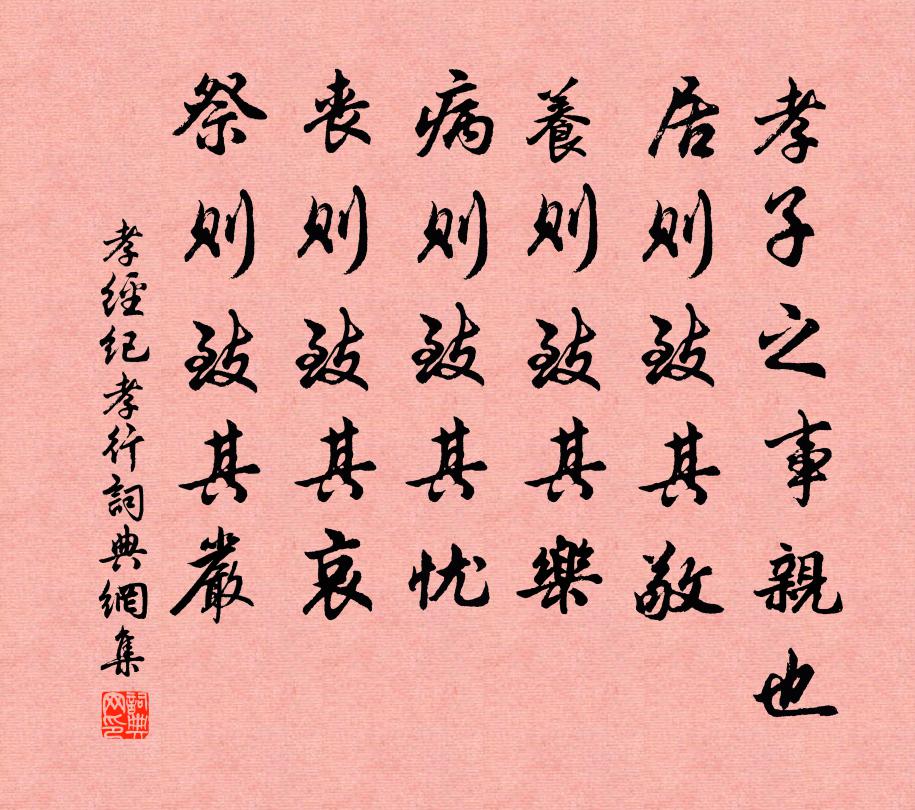 孝子之事親也
居則致其敬
養則致其樂
病則致其忧
丧則致其哀
祭則致其嚴
孝經纪孝行詞典網集
詞典网印